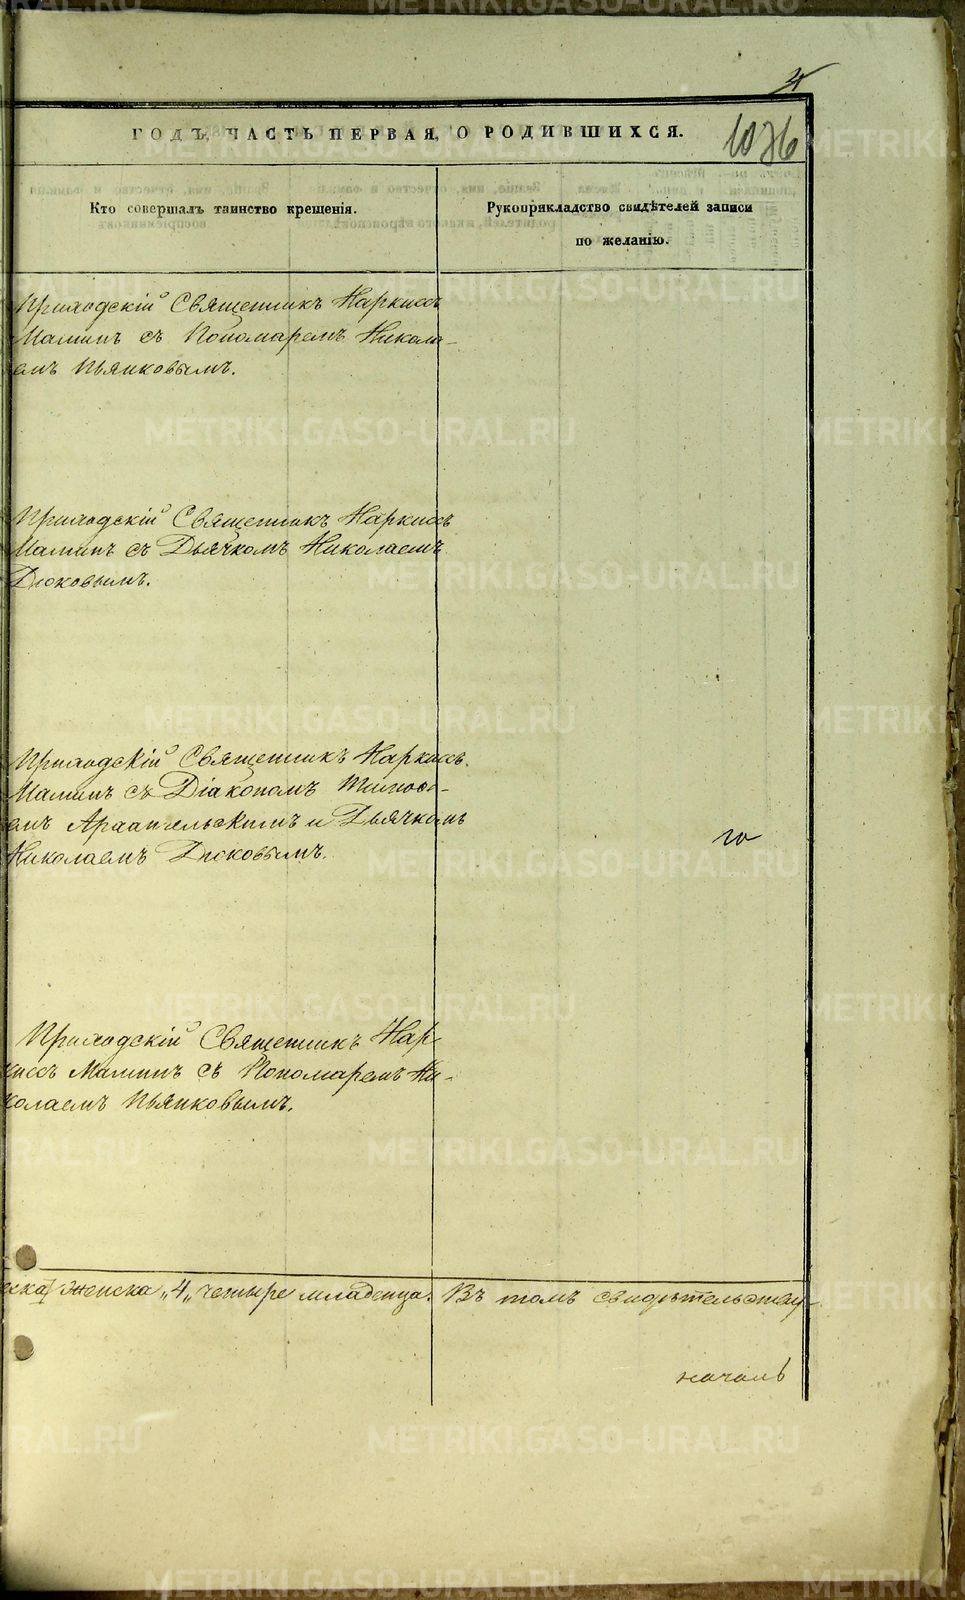 ГОДЪ, ЧАСТЬ ПЕРВАЯ, О РОДИВШИХСЯ.
1076
Кто совершалъ таинство крещенія.
Рукоприкладство свидѣтелей записи
по желанію.
Приходскій Священникъ Наркиссъ
Маминъ съ Пономаремъ Никола-
емъ Пьянковымъ.
Приходскій Священникъ Наркиссъ
Маминъ съ Дьячкомъ Николаемъ
Дюковымъ.
Приходскій Священникъ Наркиссъ
Маминъ съ Діакономъ Тимофе-
емъ Архангельскимъ и Дьячкомъ
Николаемъ Дюковымъ.
Приходскій Священникъ Нар-
киссъ Маминъ съ Пономаремъ Ни-
колаемъ Пьянковымъ.
женска „4„ четыре младенца. Въ томъ свидѣтельству-
METRIKI.GASO-URAL.RU